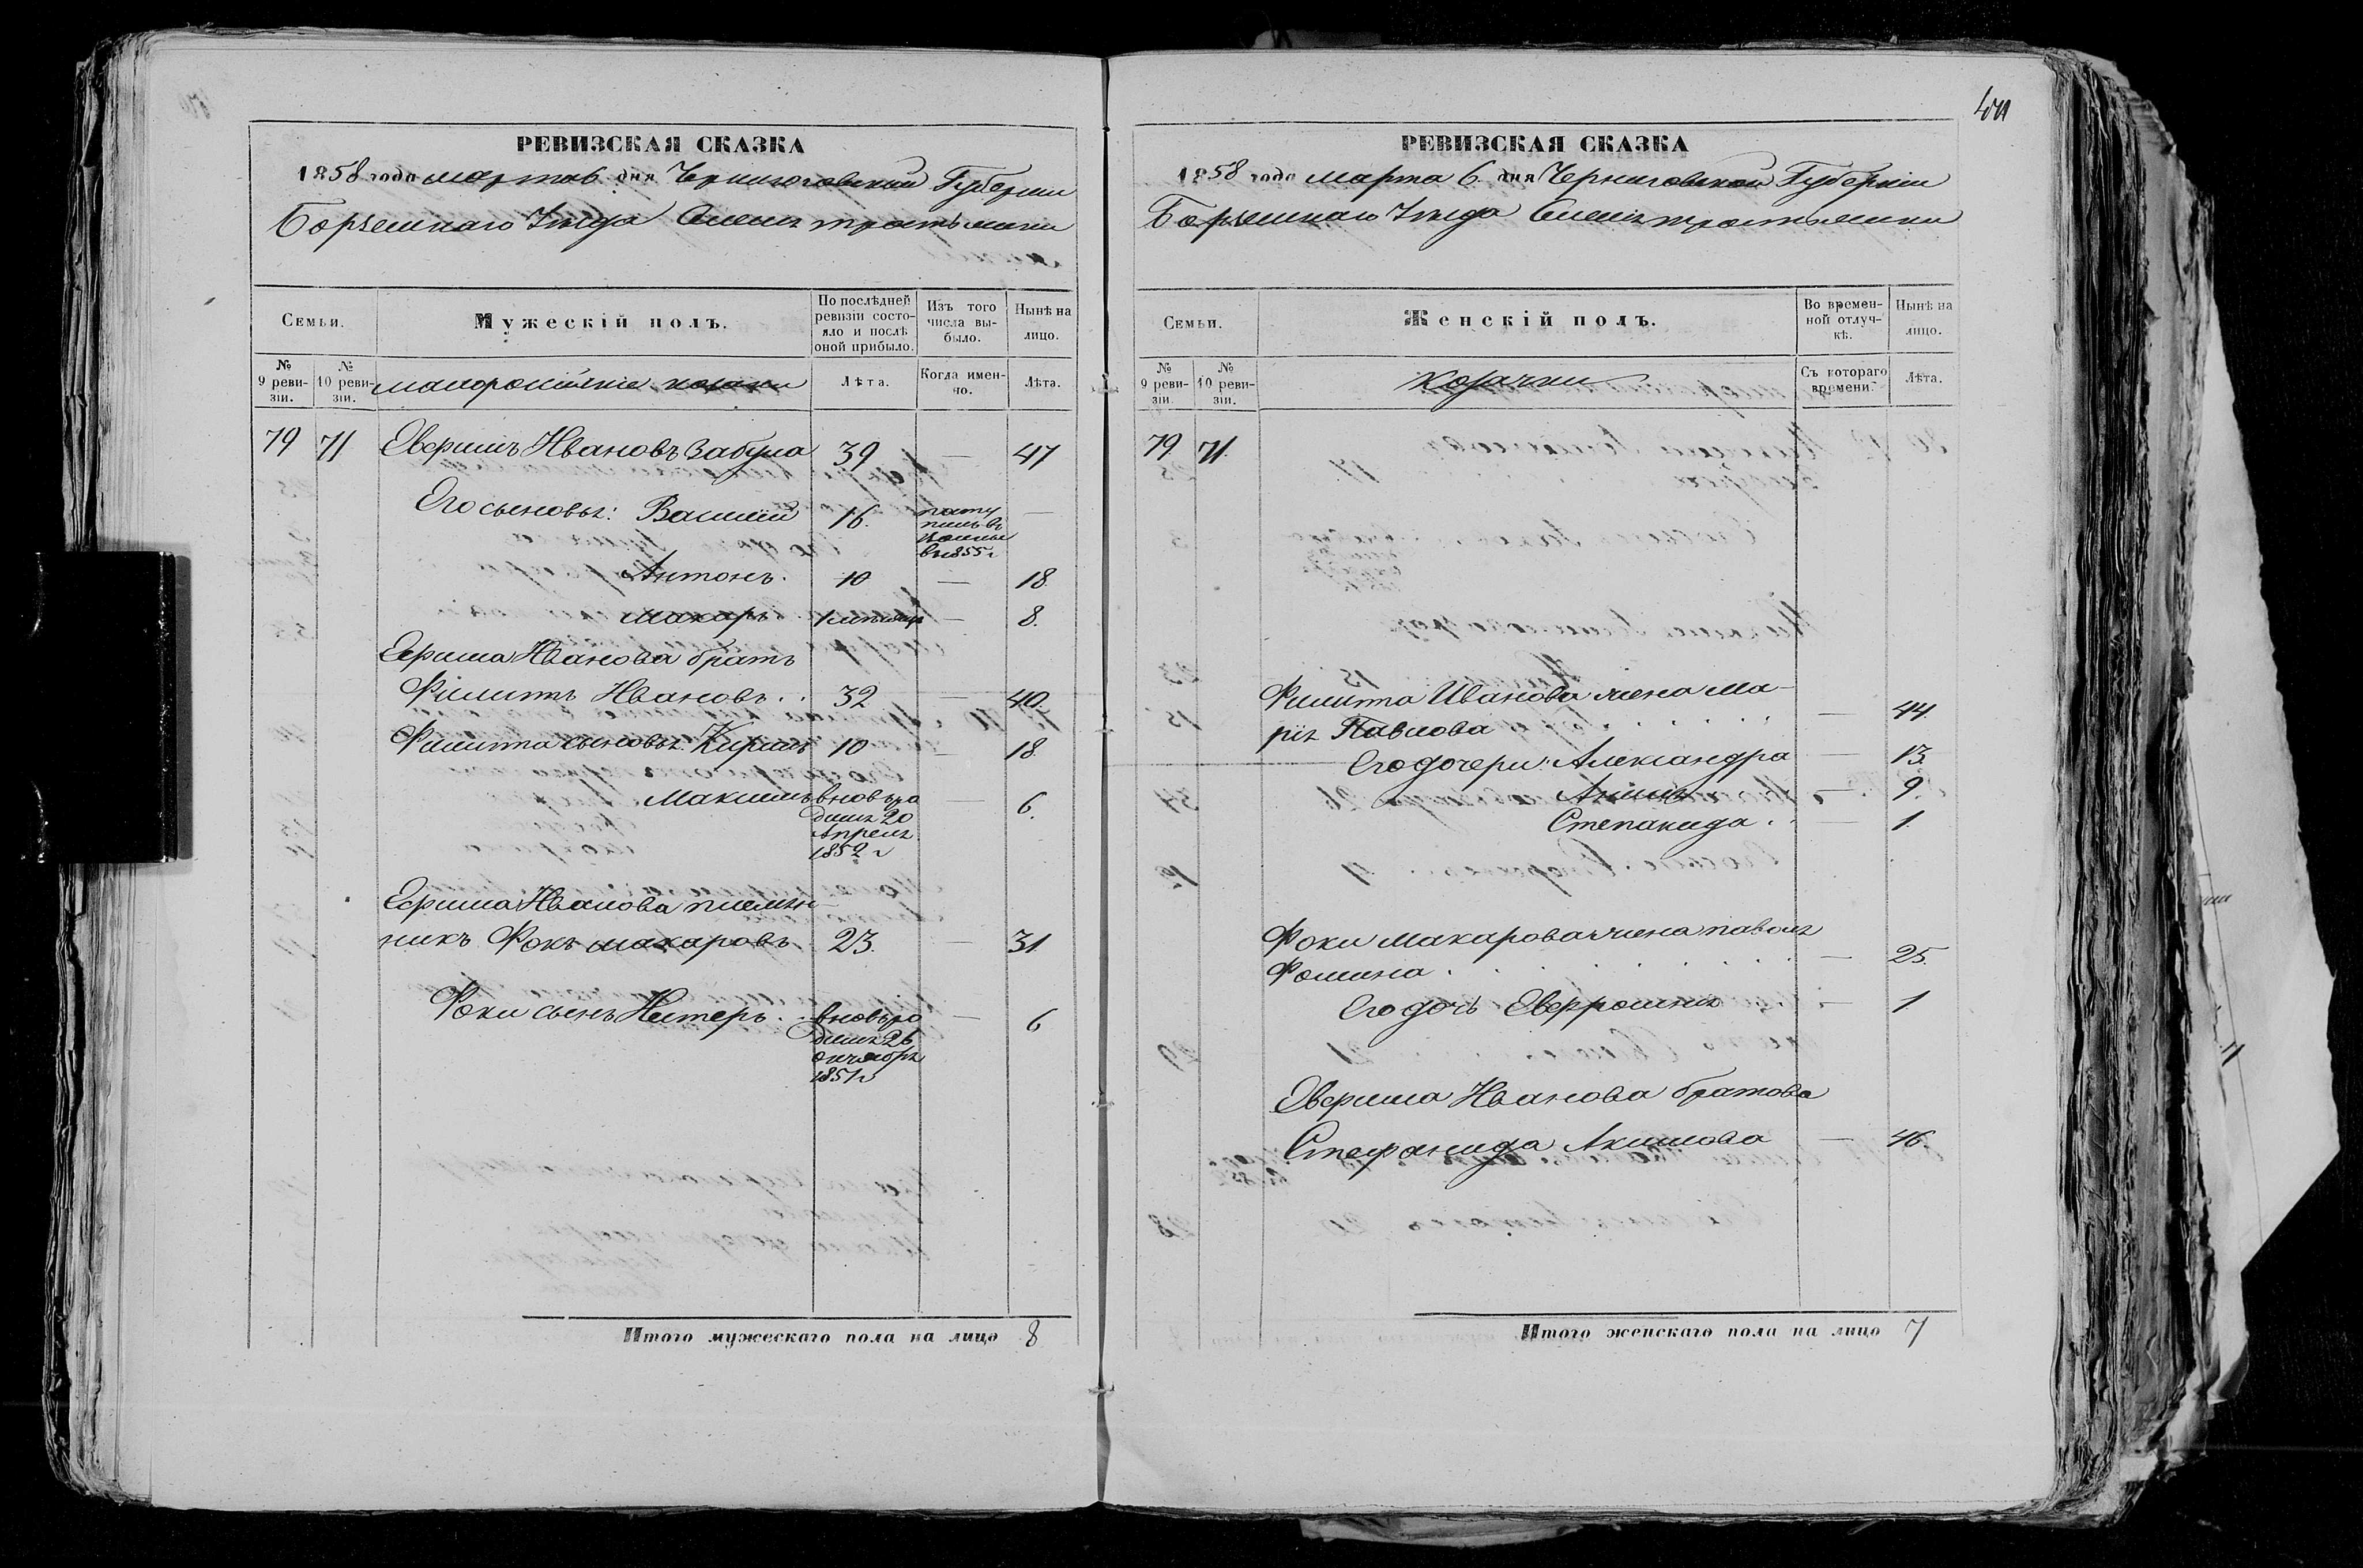 РЕВИЗСКАЯ СКАЗКА
1858 года марта 6 дня Черниговской Губернии
Борзенскаго Уезда
Семьи.
Мужескій полъ.
По послѣдней ревизіи состояло и послѣ оной прибыло.
Изъ того числа выбыло.
Нынѣ на лицо.
№ 9 ревизіи.
№ 10 ревизіи.
малороссійскіе козаки
Лѣта.
Когда именно.
Лѣта.
79 71 Ивановъ Забула 39 — 47
Его сыновья: Василій 16. в 1855 г —
Антонъ. 10 — 18.
Макаръ — 8.
Иванова братъ
Филиппъ Ивановъ. . 32 — 40.
Филиппа сыновья: Кирилъ 10 — 18
Максимъ вновь ро — 6.
дился 20
Апреля
1852 г
Иванова племян-
никъ Фокъ Макаровъ 23. — 31.
Фоки сынъ Нестеръ. . вновь ро — 6
дился 26
октября
1851 г
Итого мужескаго пола на лицо 8
РЕВИЗСКАЯ СКАЗКА
1858 года марта 6 дня Черниговской Губерніи
Борзенскаго Уезда
Семьи.
Женскій полъ.
Во временной отлучкѣ.
Нынѣ на лицо.
№ 9 ревизіи.
№ 10 ревизіи.
козачки
Съ котораго времени.
Лѣта.
79 71.
Филиппа Иванова жена Ма-
рія Павлова — 44.
Его дочери: Александра — 13.
— 9.
Степанида. — 1.
Фоки Макарова жена
Фомина — 25.
Его дочь — 1
Иванова братова
Стефанида Акимова — 46.
Итого женскаго пола на лицо 7